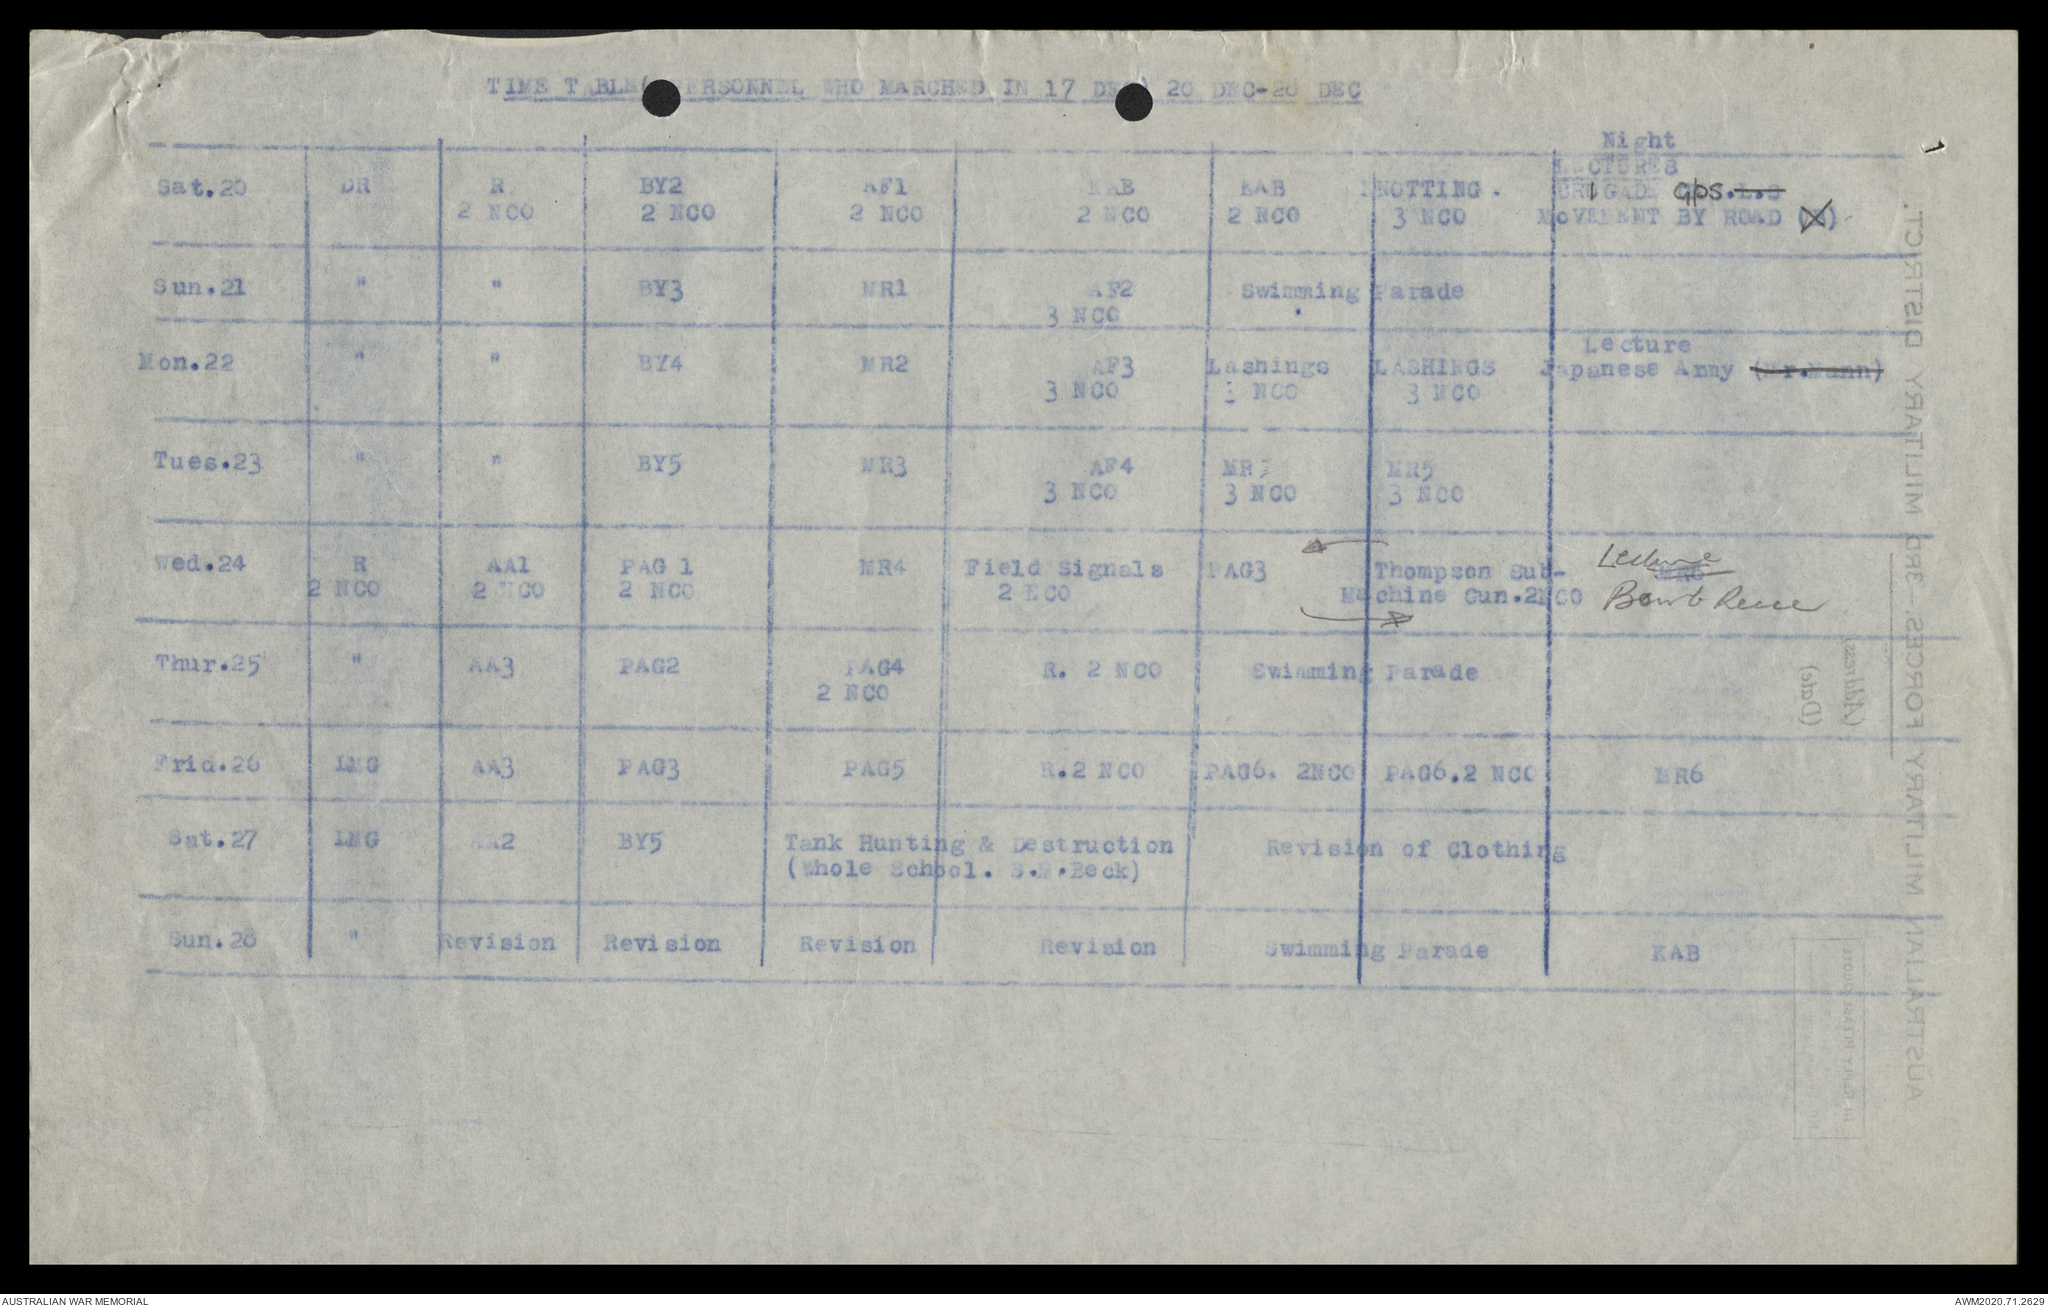 TIME TABLE( PERSONNEL WHO MARCHED IN 17 DEC) 20 DEC-28 DEC
Night
LECTURES
Sat.20 DR R BY2 AF1 KAB KAB KNOTTING. BRIGADE Gps.L.S
2 NCO 2 NCO 2 NCO 2 NCO 2 NCO 3 NCO MOVEMENT BY ROAD
Sun.21 " " BY3 MR1 AF2 Swimming Parade
3 NCO
Lecture
Mon.22 " " BY4 MR2 AF3 Lashings LASHINGS Japanese Army (Mr.Munn)
3 NCO 3 NCO 3 NCO
Tues.23 " " BY5 MR3 AF4 MR5 MR5
3 NCO 3 NCO 3 NCO
Wed.24 R AA1 PAG 1 MR4 Field Signals PAG3 Thompson Sub- Lecture MR6
2 NCO 2 NCO 2 NCO 2 NCO Machine Gun.2NCO Bomb Recce
Thur.25 " AA3 PAG2 PAG4 R. 2 NCO Swimming Parade
2 NCO
Frid.26 LMG AA3 PAG3 PAG5 R.2 NCO PAG6. 2NCO PAG6.2 NCO MR6
Sat.27 LMG AA2 BY5 Tank Hunting & Destruction Revision of Clothing
(Whole School. Beck)
Sun.28 " Revision Revision Revision Revision Swimming Parade KAB
AUSTRALIAN MILITARY FORCES.—3RD MILITARY DISTRICT.
(Address)
(Date)
In Reply PLEASE QUOTE
No.
1
AUSTRALIAN WAR MEMORIAL
AWM2020.71.2629